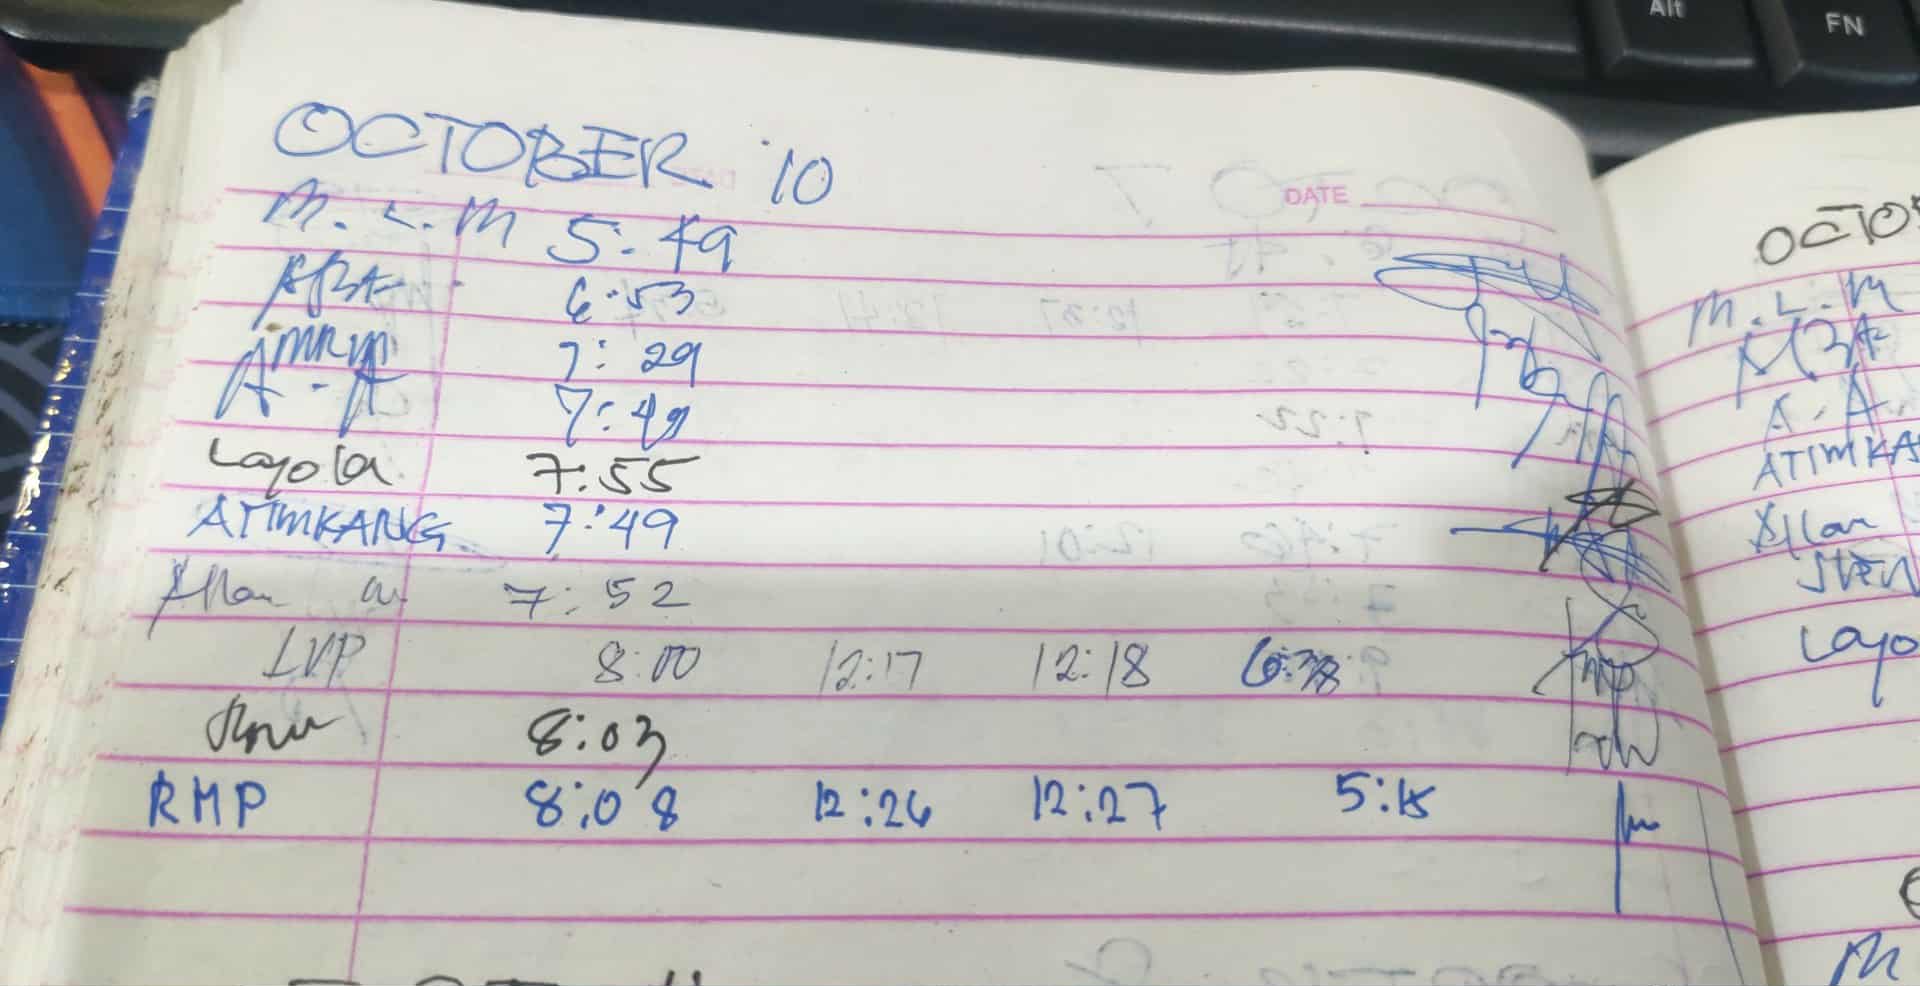 Alt
FN
OCTOBER 10
DATE
M.L.M 5:49
6:53
AMRM 7:29
A-A 7:49
Layola 7:55
ATIMKANG 7:49
Allan 7:52
LVP 8:00 12:17 12:18
8:03
RMP 8:08 12:26 12:27 5:15
OCTO
M.L.M
A.A
ATIMKA
Allan
STEN
Layo
M